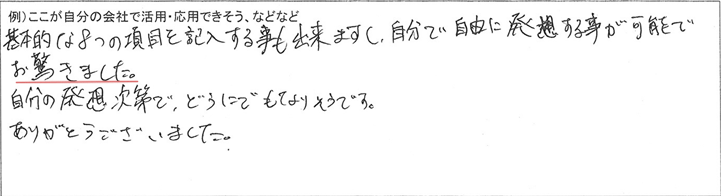 例)ここが自分の会社で活用・応用できそう、などなど
基本的な8つの項目を記入する事も出来ますし、自分で自由に発想する事が可能で
お驚きました。
自分の発想次第で、どうにでもなりそうです。
ありがとうございました。